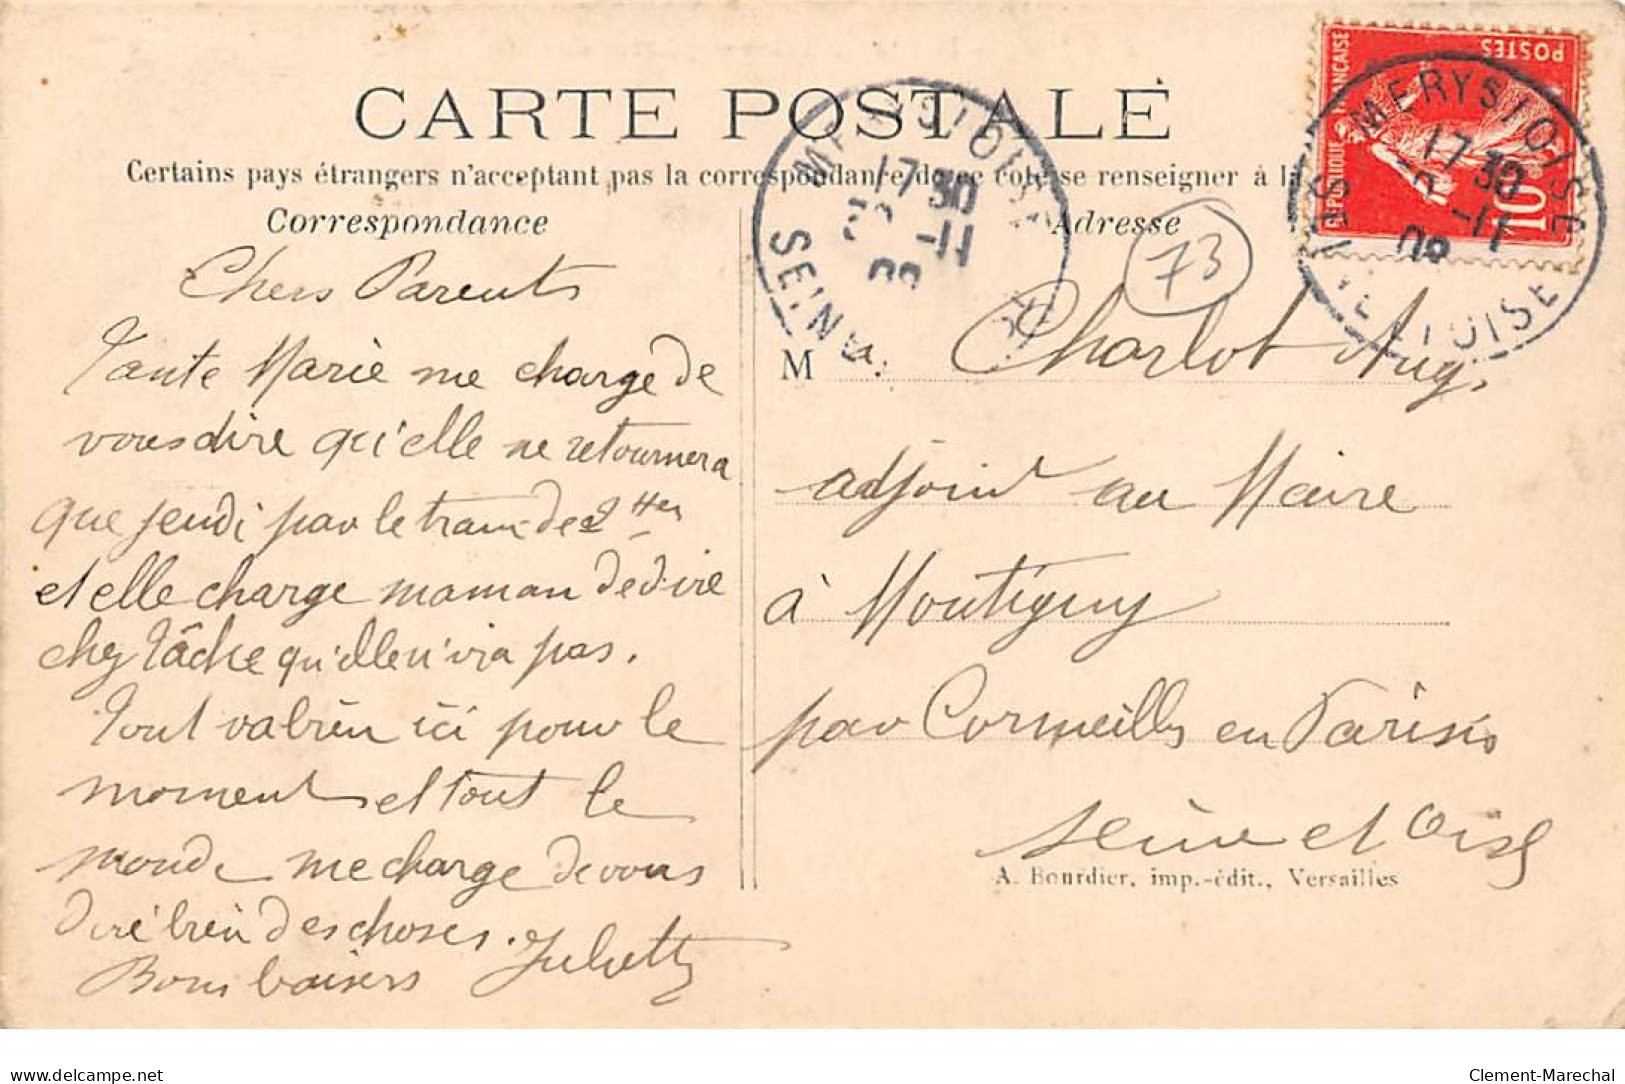 CARTE POSTALE
Certains pays étrangers n'acceptant pas la correspondance de ce côté se renseigner à la
Correspondance
Adresse
Chers Parents
Tante Marie me charge de
vous dire qu'elle ne retournera
que jeudi par le train de 2 Hes
et elle charge maman de dire
chez Tâche qu'elle n'ira pas.
Tout va bien ici pour le
moment et tout le
monde me charge de vous
dire bien des choses.
Bons baisers Juliette
73
M a. Charlot Aug.
adjoint au Maire
à Montigny
par Cormeilles en Parisis
Seine et Oise
A. Bourdier, imp.-édit., Versailles
MERY S/ OISE
17 30
-11
09
SEINE
MERY S/ OISE
17 30
-11
09
SEINE ET OISE
REPUBLIQUE FRANÇAISE
POSTES
10
delcampe.net
Clement-Marechal